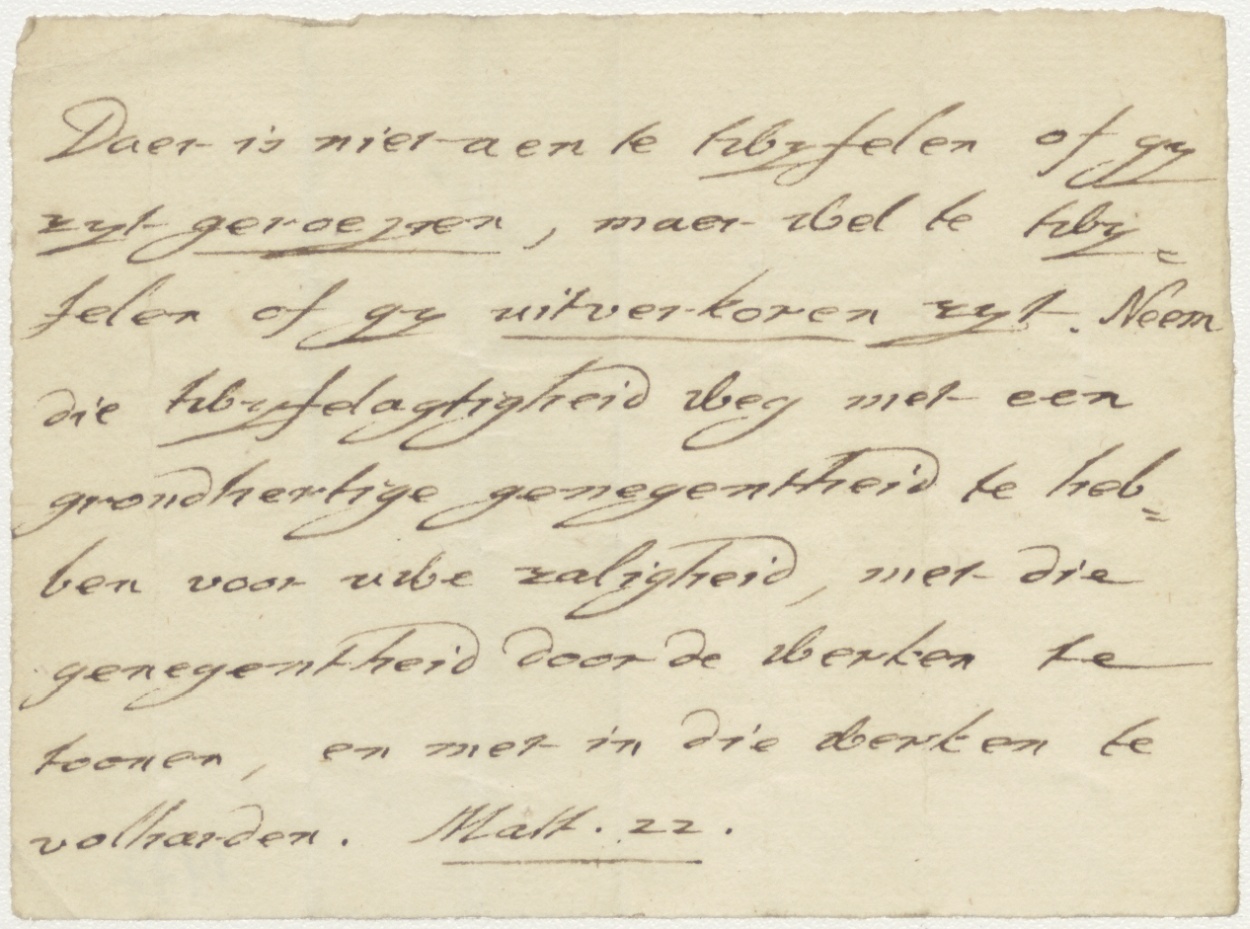 Daer is niet aen te twyfelen of gy
zyt geroepen, maer wel te twy=
felen of gy uitverkoren zyt. Neem
die twyfelagtigheid weg met een
grondhertige genegentheid te heb=
ben voor uwe zaligheid, met die
genegentheid door de werken te
toonen, en met in die werken te
volharden. Matt. 22.